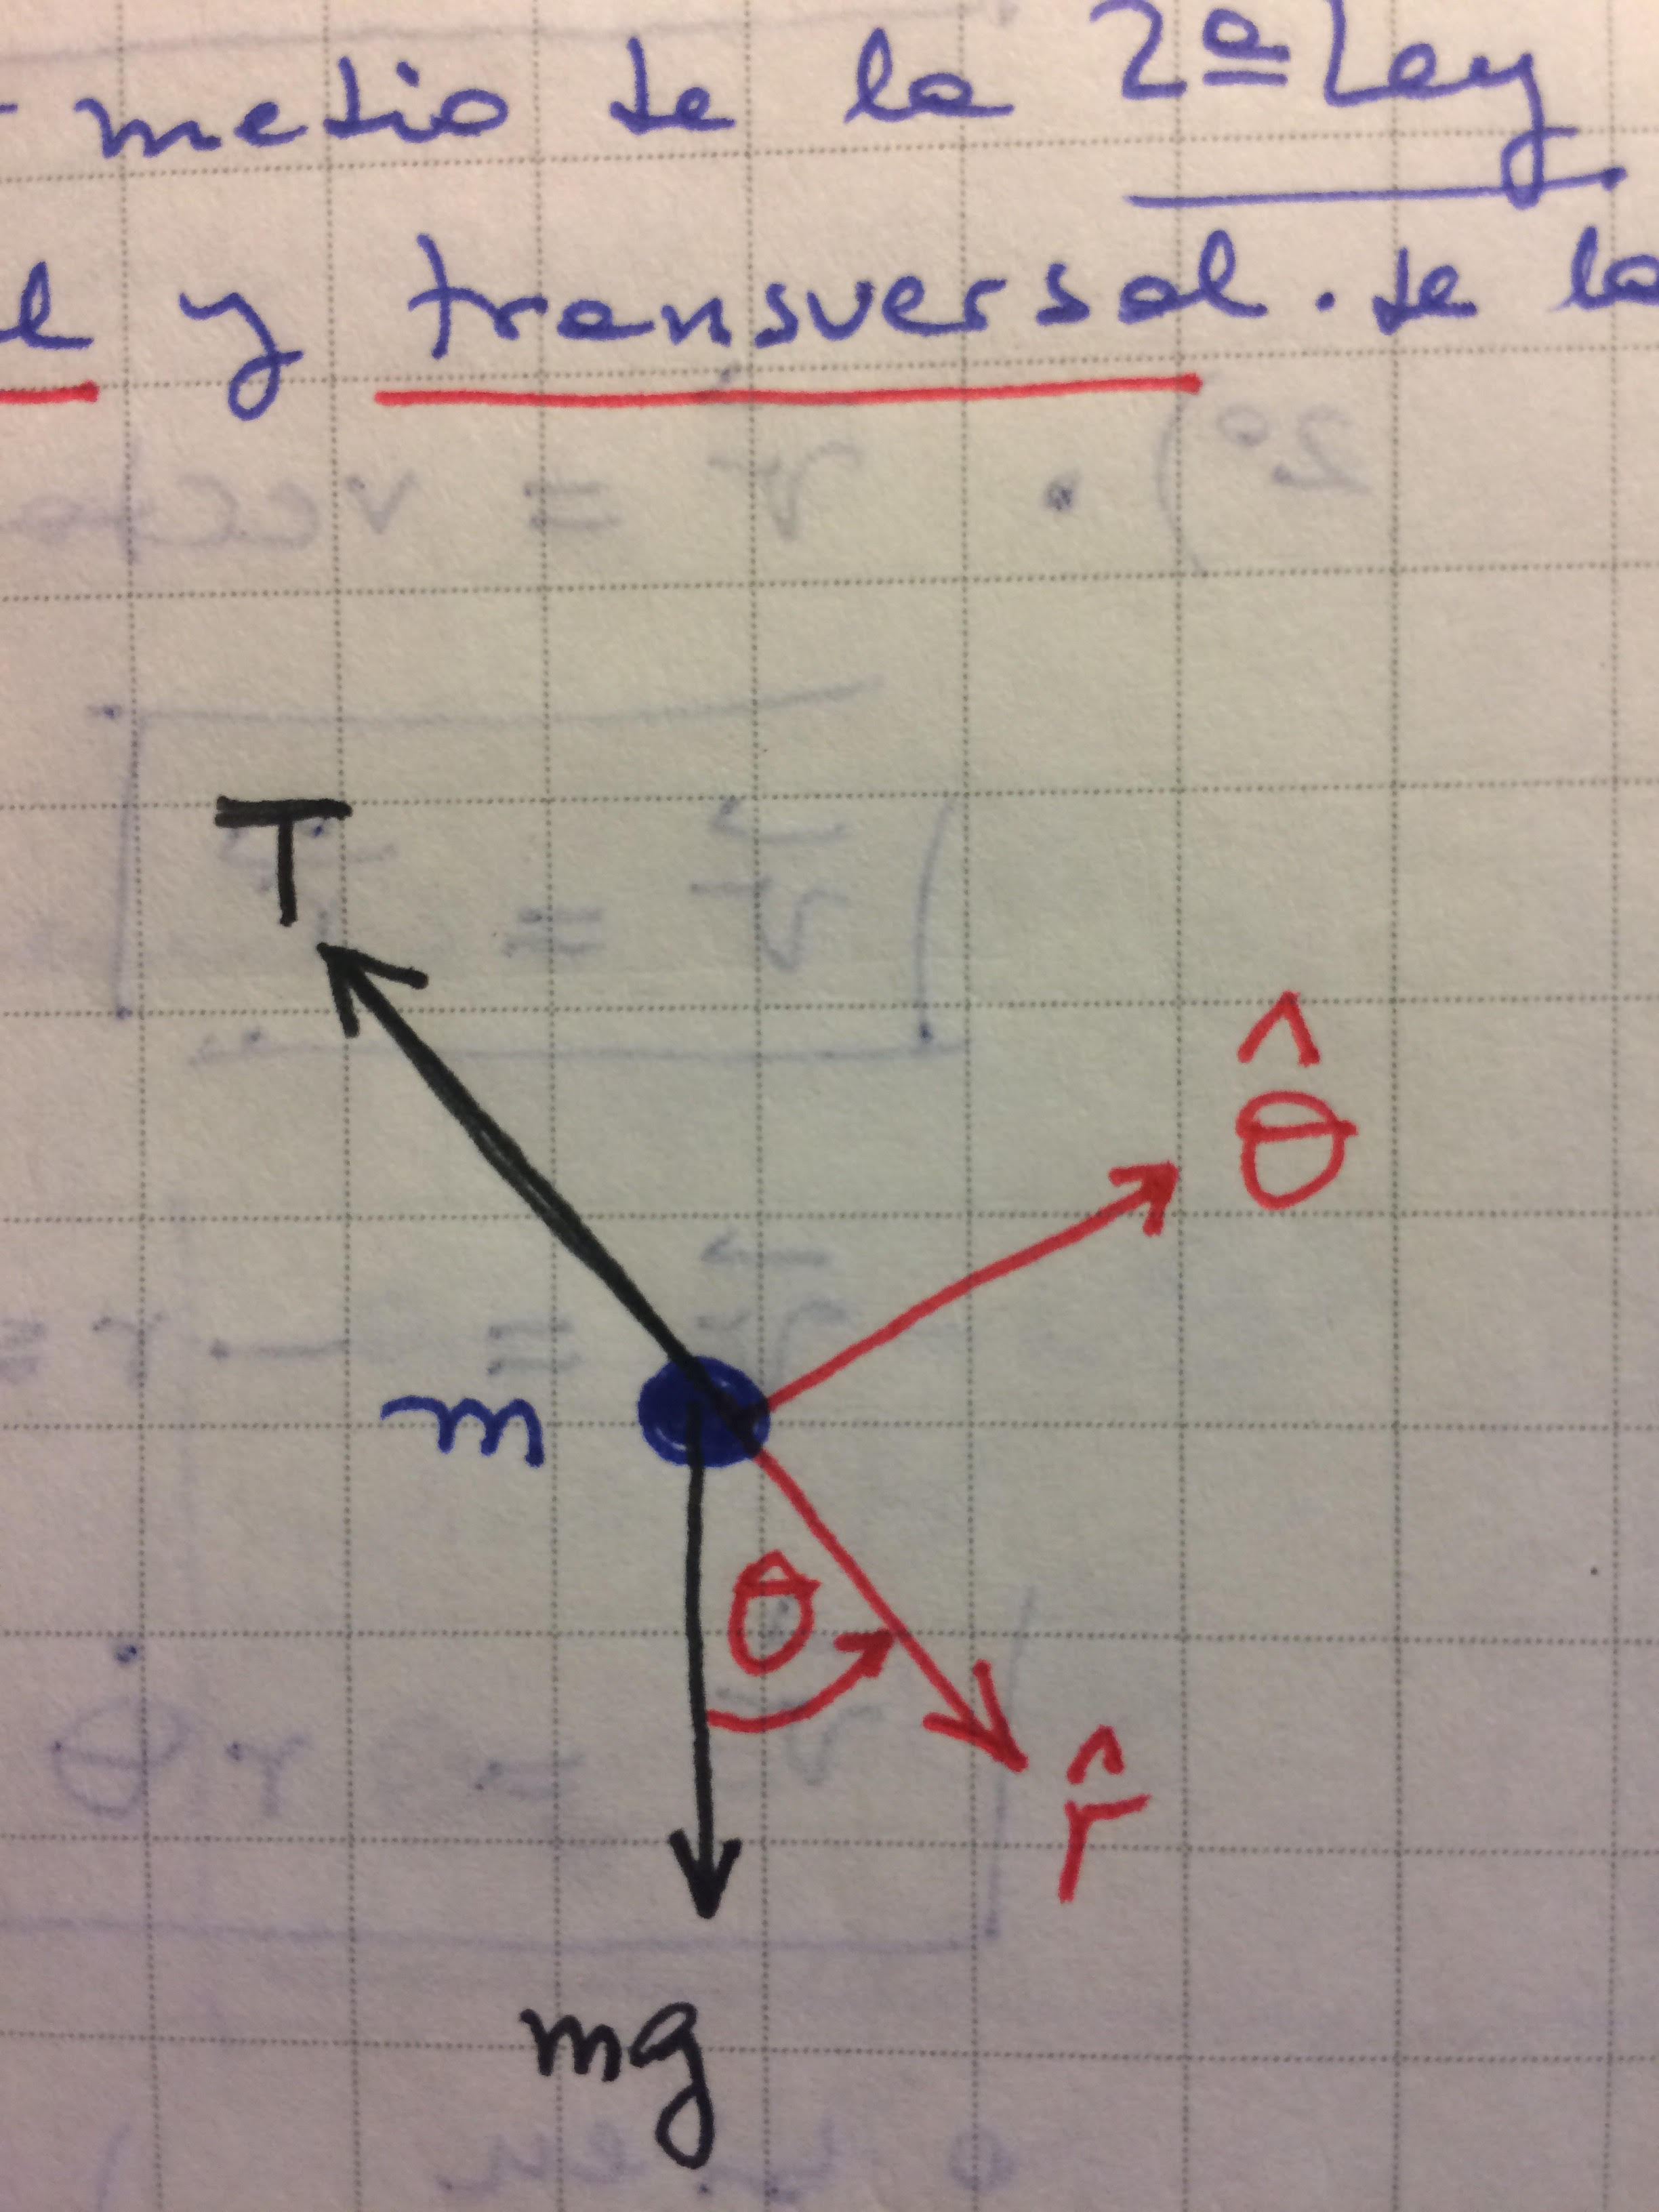 medio de la 2ª Ley
l y transversal. de la
T
θ̂
m
θ
r̂
mg